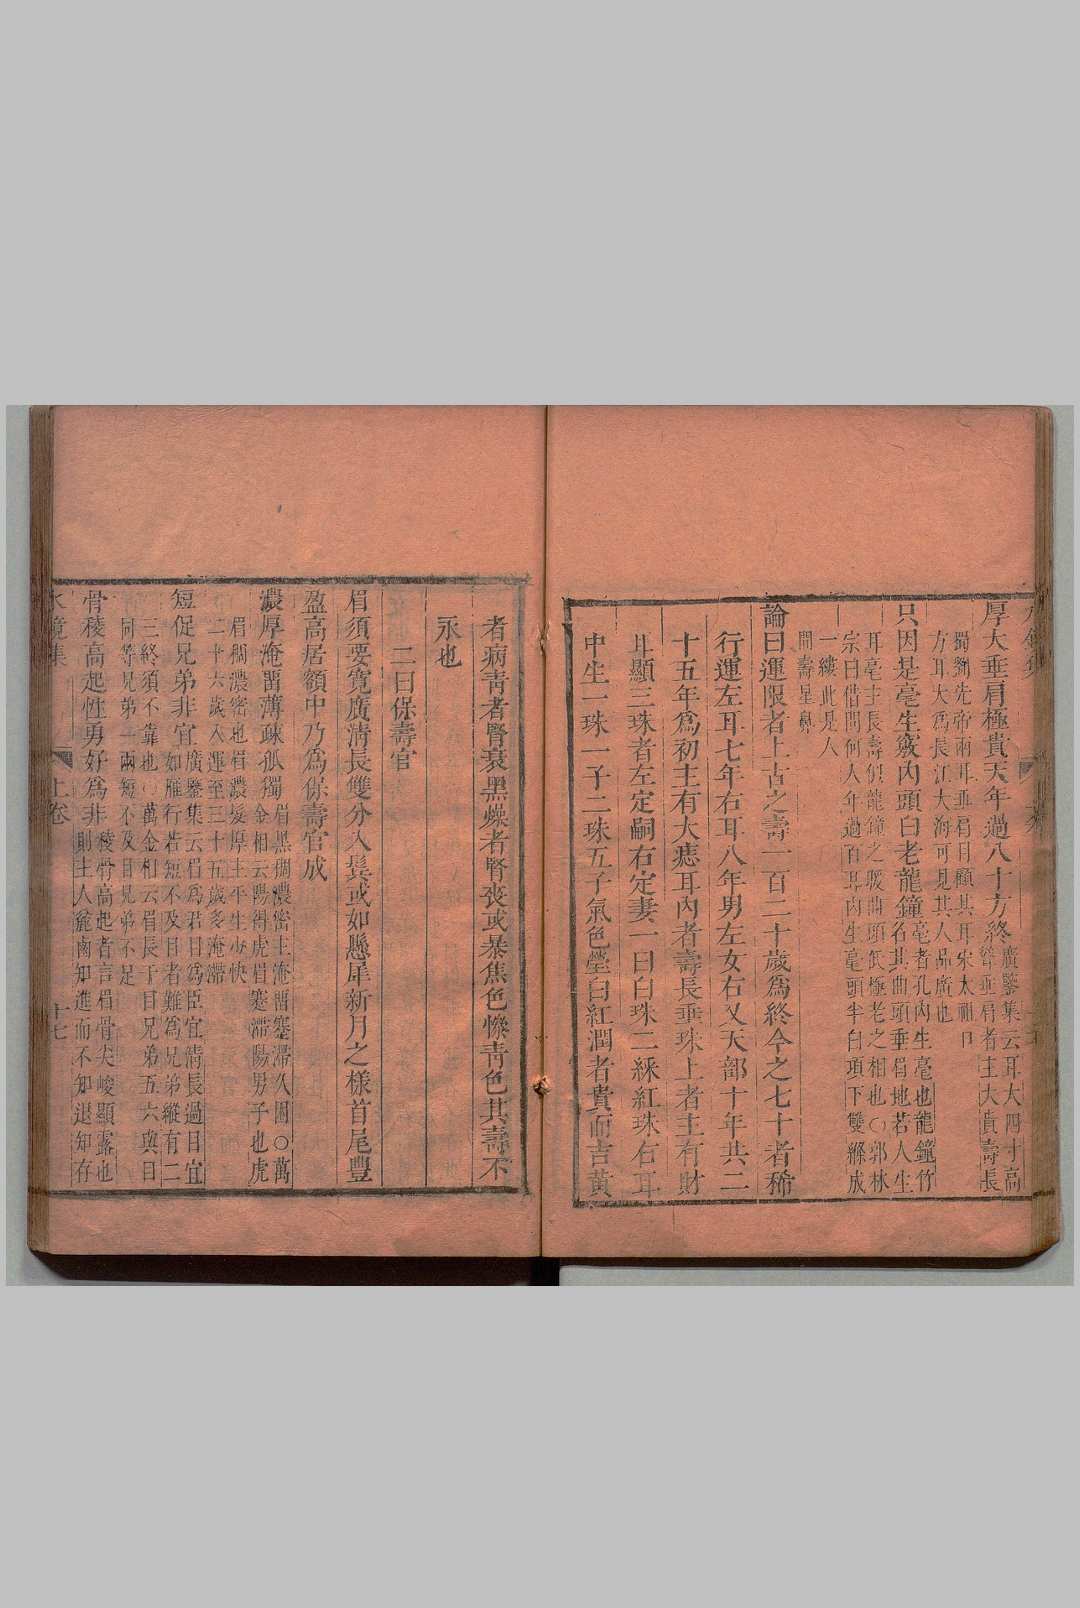 厚大垂肩極貴天年過八十方終
廣鑒集云耳大四寸高
聳垂肩者主大貴壽長
蜀劉先帝兩耳垂肩目顧其耳宋太祖口
方耳大為長江大海可見其人品廣也
只因是毫生竅內頭白老龍鐘
毫者孔內生毫也龍鐘竹
名其曲頭垂肩地若人生
耳毫主長壽似龍鐘之曲頭低極老之相也○郭林
宗曰借問何人年過百耳內生毫頭半白項下雙絛成
一縷此是人
間壽星鼻
論曰運限者上古之壽一百二十歲為終今之七十者稀
行運左耳七年右耳八年男左女右又天部十年共二
十五年為初主有大痣耳內者壽長垂珠上者主有財
耳顯三珠者左定嗣右定妻一曰白珠二綵紅珠右耳
中生一珠一子二珠五子氣色瑩白紅潤者貴而吉黃
者病青者腎衰黑燥者腎喪或暴焦色慘青色其壽不
永也
二曰保壽官
眉須要寬廣清長雙分入鬓或如懸犀新月之樣首尾豐
盈高居額中乃為保壽官成
濃厚淹留薄疎孤獨
眉黑稠濃密主淹留蹇滯久困○萬
金相云陽得虎眉蹇滯陽男子也虎
眉稠濃密也眉濃髮厚主平生少快
二十六歲入運至三十五歲多淹滯
短促兄弟非宜
廣鑒集云眉為君目為臣宜清長過目宜
如雁行若短不及目者難為兄弟縱有二
三終須不靠也○萬金相云眉長于目兄弟五六與目
同等兄弟一兩短不及目兄弟不足
骨稜高起性勇好為非
稜骨高起者言眉骨尖峻顯露也
則主人麄鹵知進而不知退知存
水鏡集
上卷
十七